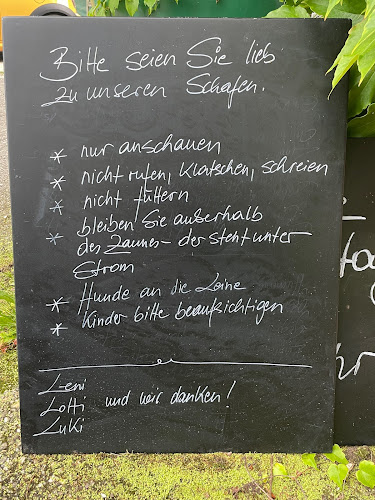 Bitte seien Sie lieb
zu unseren Schafen.
* nur anschauen
* nicht rufen, klatschen, schreien
* nicht füttern
* bleiben Sie außerhalb
des Zaunes - der steht unter
Strom
* Hunde an die Leine
* Kinder bitte beaufsichtigen
Leni
Lotti und wir danken!
Luki